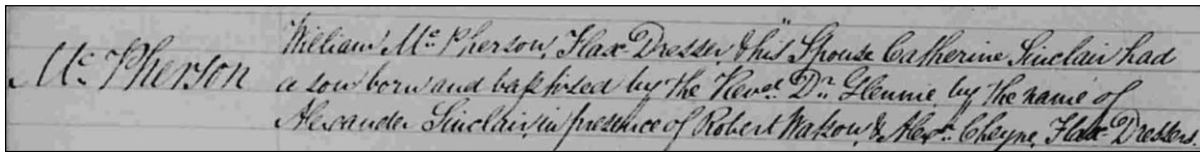 McPherson
William McPherson, Flax Dresser, & his Spouse Catherine Sinclair had
a son born and baptized by the Revd. Dr. Glennie, by the name of
Alexander Sinclair, in presence of Robert Watson, & Alexr. Cheyne, Flax Dressers.